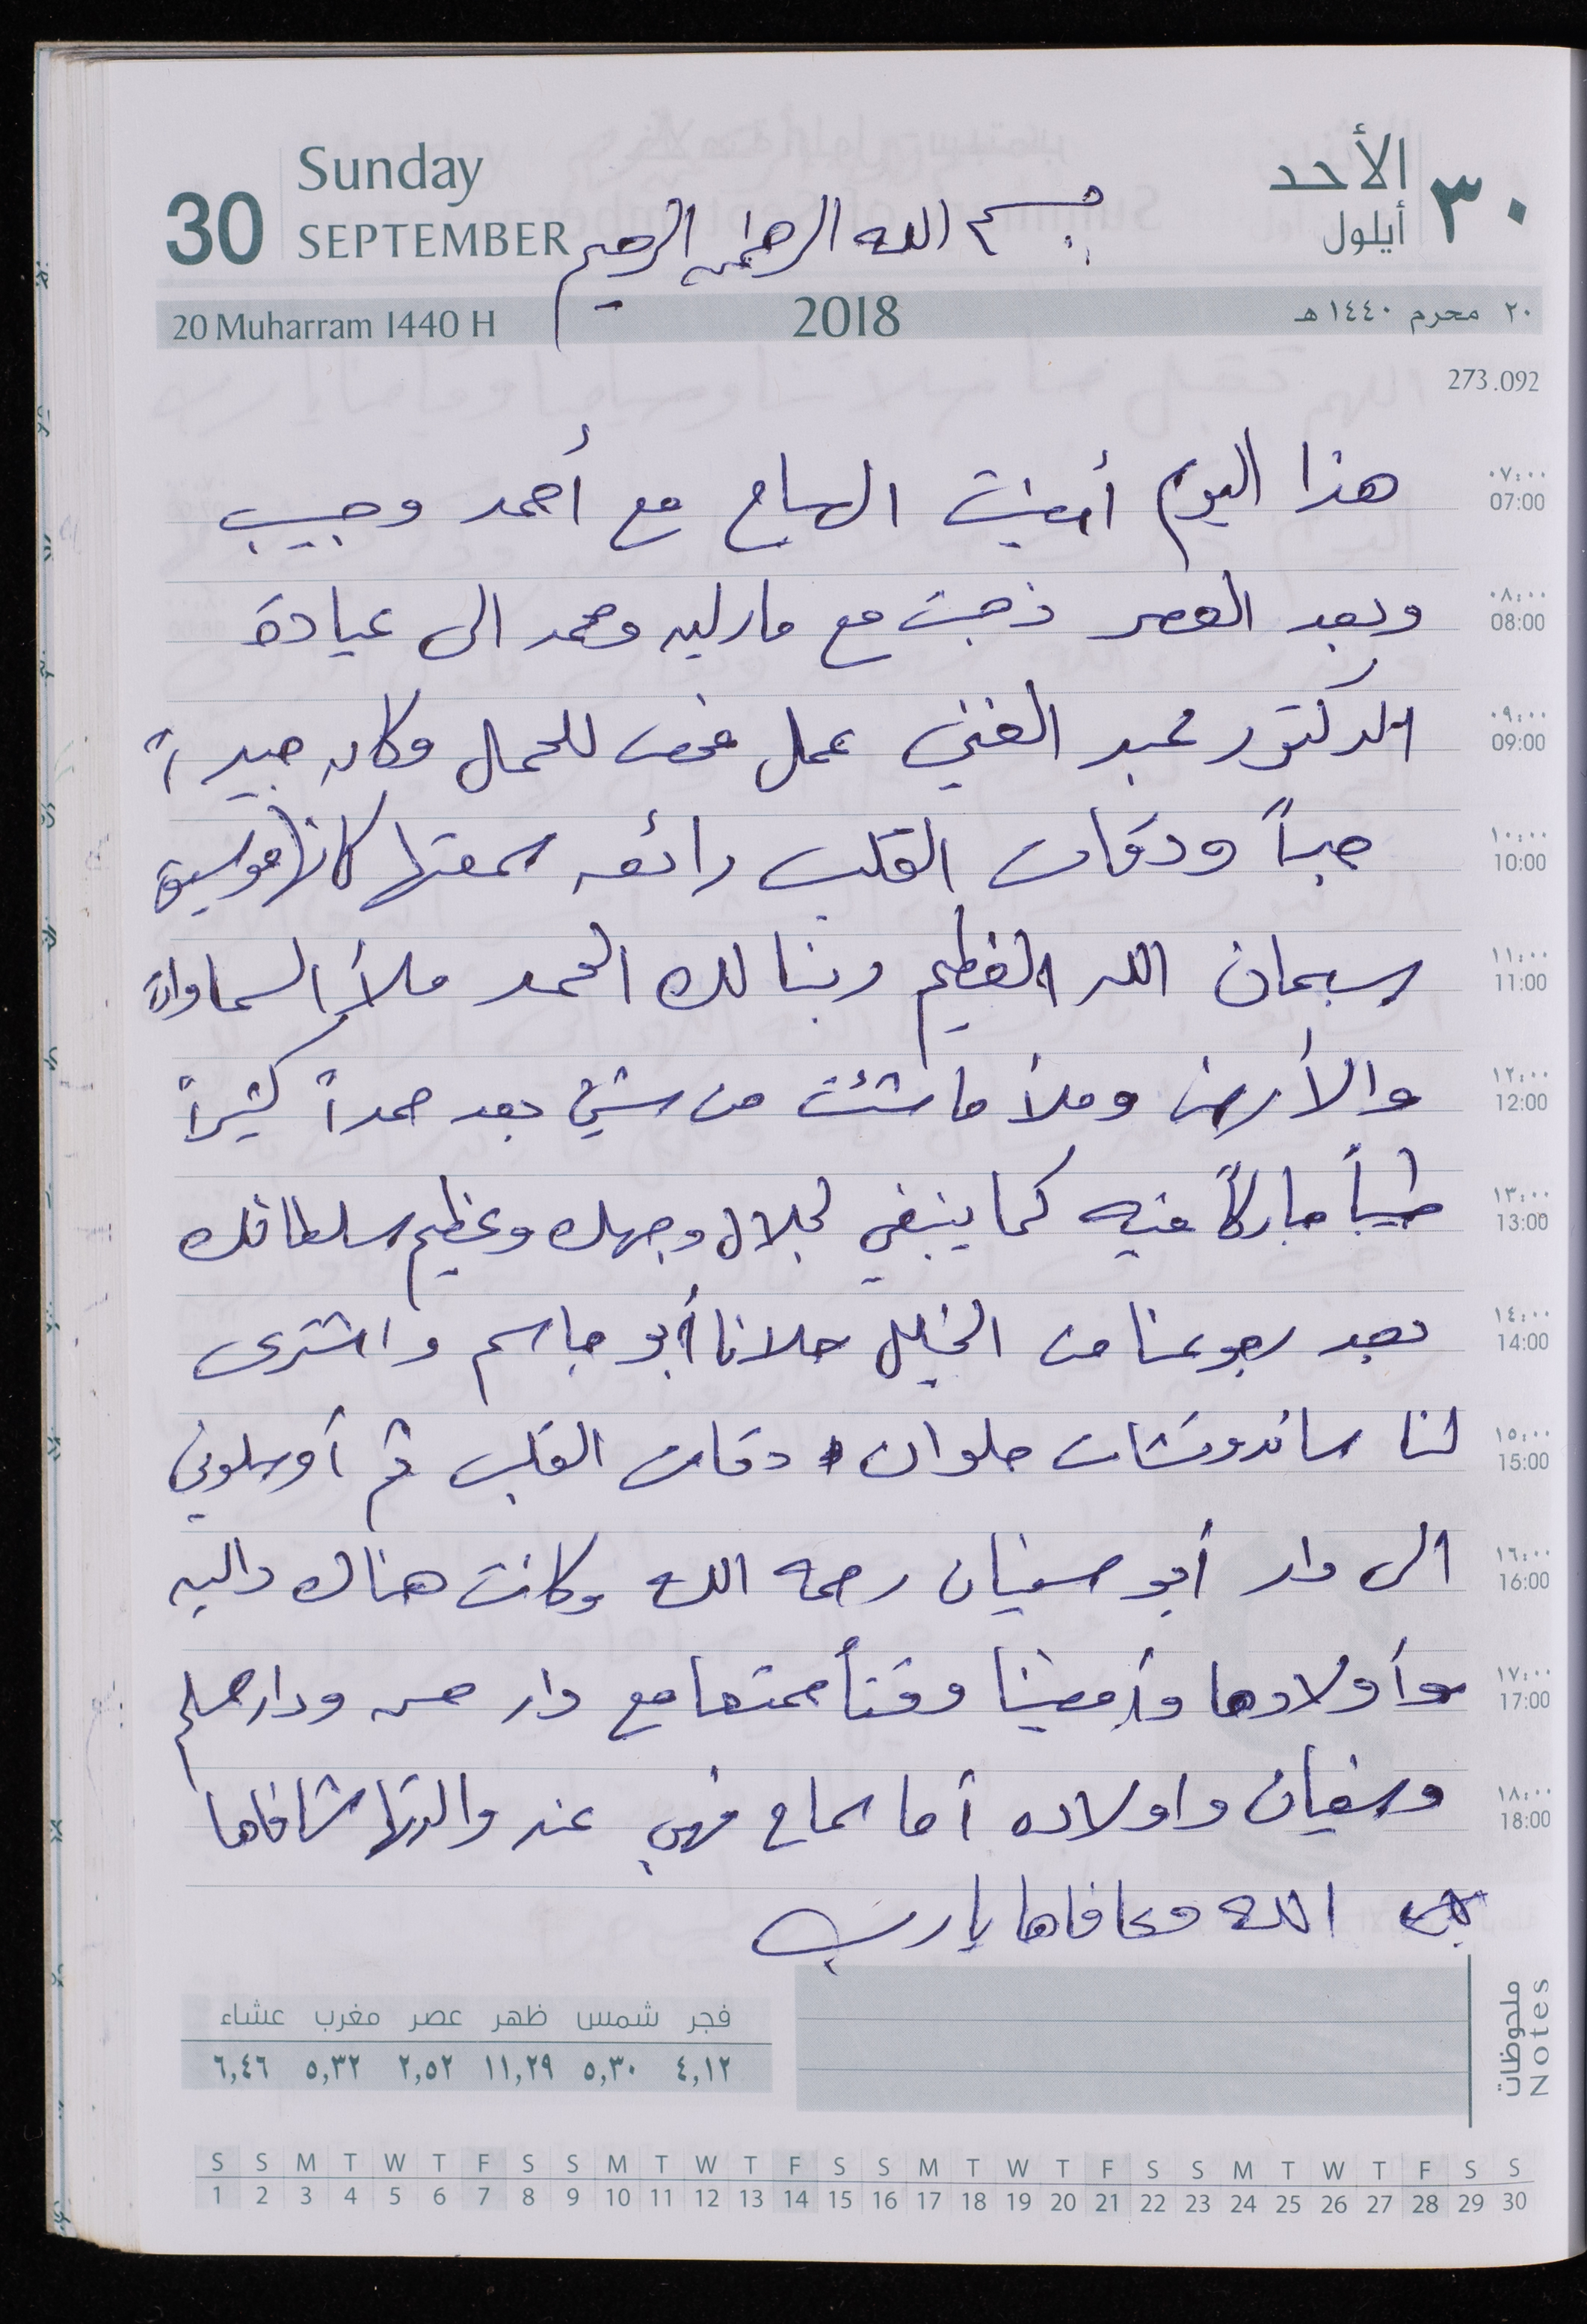 30
Sunday
SEPTEMBER
الأحد
أيلول
٣٠
بسم الله الرحمن الرحيم
20 Muharram 1440 H
2018
٢٠ محرم ١٤٤٠هـ
273.092
٠٧:٠٠
07:00
هذا اليوم أمضيت الصباح مع أحمد وحبيب
٠٨:٠٠
08:00
وبعد العصر ذهبت مع مارلين ومحمد الى عيادة
٠٩:٠٠
09:00
الدكتور عبد الغني عمل فحص للحمل وكان جيداً
١٠:٠٠
10:00
جداً ودقات القلب رائعه سمعتها كانها موسيقى
١١:٠٠
11:00
سبحان الله العظيم ربنا لك الحمد ملأ السماوات
١٢:٠٠
12:00
والأرض وملأ ما شئت من شيئ بعد حمداً كثيراً
١٣:٠٠
13:00
طيباً مباركاً فيه كما ينبغي لجلال وجهك وعظيم سلطانك
١٤:٠٠
14:00
بعد رجوعنا من الخليل حلانا أبو جاسم واشترى
١٥:٠٠
15:00
لنا ساندوتشات حلوان دقات القلب ثم أوصلوني
١٦:٠٠
16:00
الى دار أبو سفيان رحمه الله وكانت هناك داليه
١٧:٠٠
17:00
وأولادها وأمضينا وقتاً ممتعا مع دار حسن ودار
١٨:٠٠
18:00
وسفيان واولاده أما سماح فهي عند والدتها شافاها
الله وعافاها يا رب
ملحوظات
Notes
فجر شمس ظهر عصر مغرب عشاء
٤,١٢ ٥,٣٠ ١١,٢٩ ٢,٥٢ ٥,٣٢ ٦,٤٦
S S M T W T F S S M T W T F S S M T W T F S S M T W T F S S
1 2 3 4 5 6 7 8 9 10 11 12 13 14 15 16 17 18 19 20 21 22 23 24 25 26 27 28 29 30